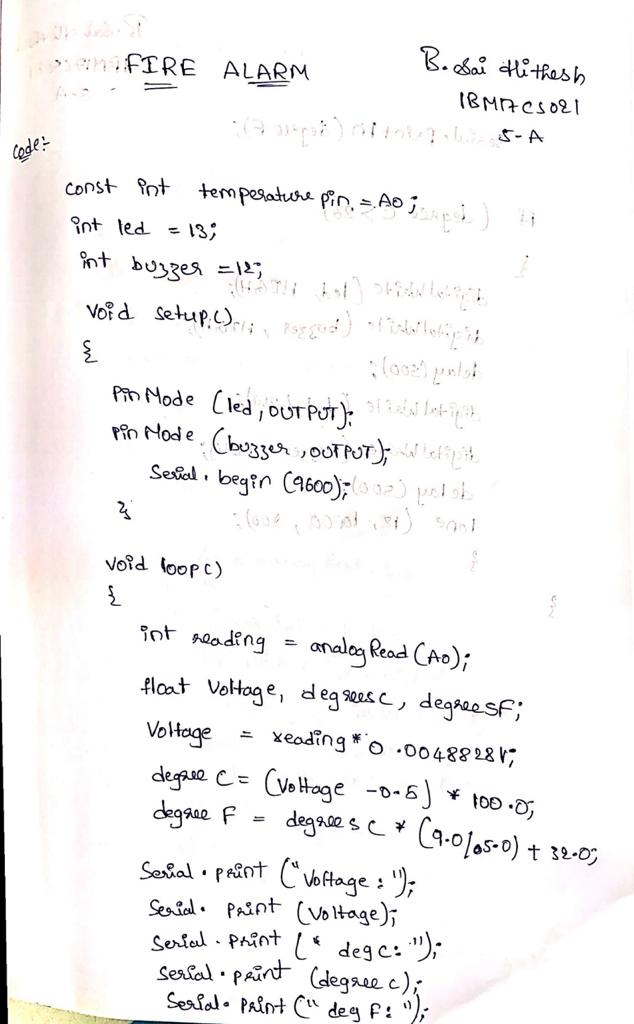 FIRE ALARM
B. Sai Hithesh
1BM17CS021
5-A
Code:-
const int temperature pin = A0;
int led = 13;
int buzzer = 12;
void setup()
{
Pin Mode (led, OUTPUT);
Pin Mode (buzzer, OUTPUT);
Serial. begin (9600);
}
void loop()
{
int reading = analog Read (A0);
float Voltage, degreesC, degreesF;
Voltage = reading * 0.00488281;
degree C = (Voltage -0.5) * 100.0;
degree F = degrees C * (9.0/5.0) + 32.0;
Serial. print ("Voltage: ");
Serial. print (Voltage);
Serial. print (" deg C: ");
Serial. print (degree c);
Serial. print (" deg F: ");